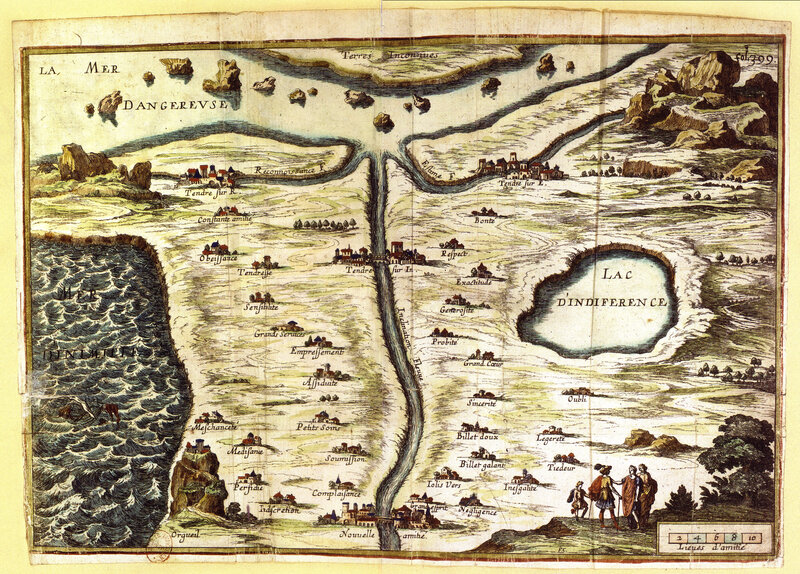 Terres Inconnues
fol 399
LA MER
DANGEREUSE
Reconnoissance F.
Estime F.
Tendre sur R.
Tendre sur E.
Constante amitié
Bonté
Obeissance
Respect
LAC
D'INDIFERENCE
Tendresse
Tendre sur In
Exactitude
MER
D'INIMITIÉ
Sensibilité
Generosite
Inclination Fleuve
Grands Services
Probité
Empressement
Grand Cœur
Assiduité
Sincerité
Oubli
Meschanceté
Petits Soins
Billet doux
Legereté
Medisance
Soumission
Billet galant
Tiedeur
Perfidie
Complaisance
Iolis Vers
Inesgalité
Indiscretion
Negligence
Orgueil
Nouvelle amitié
2 4 6 8 10
Lieues d'amitié